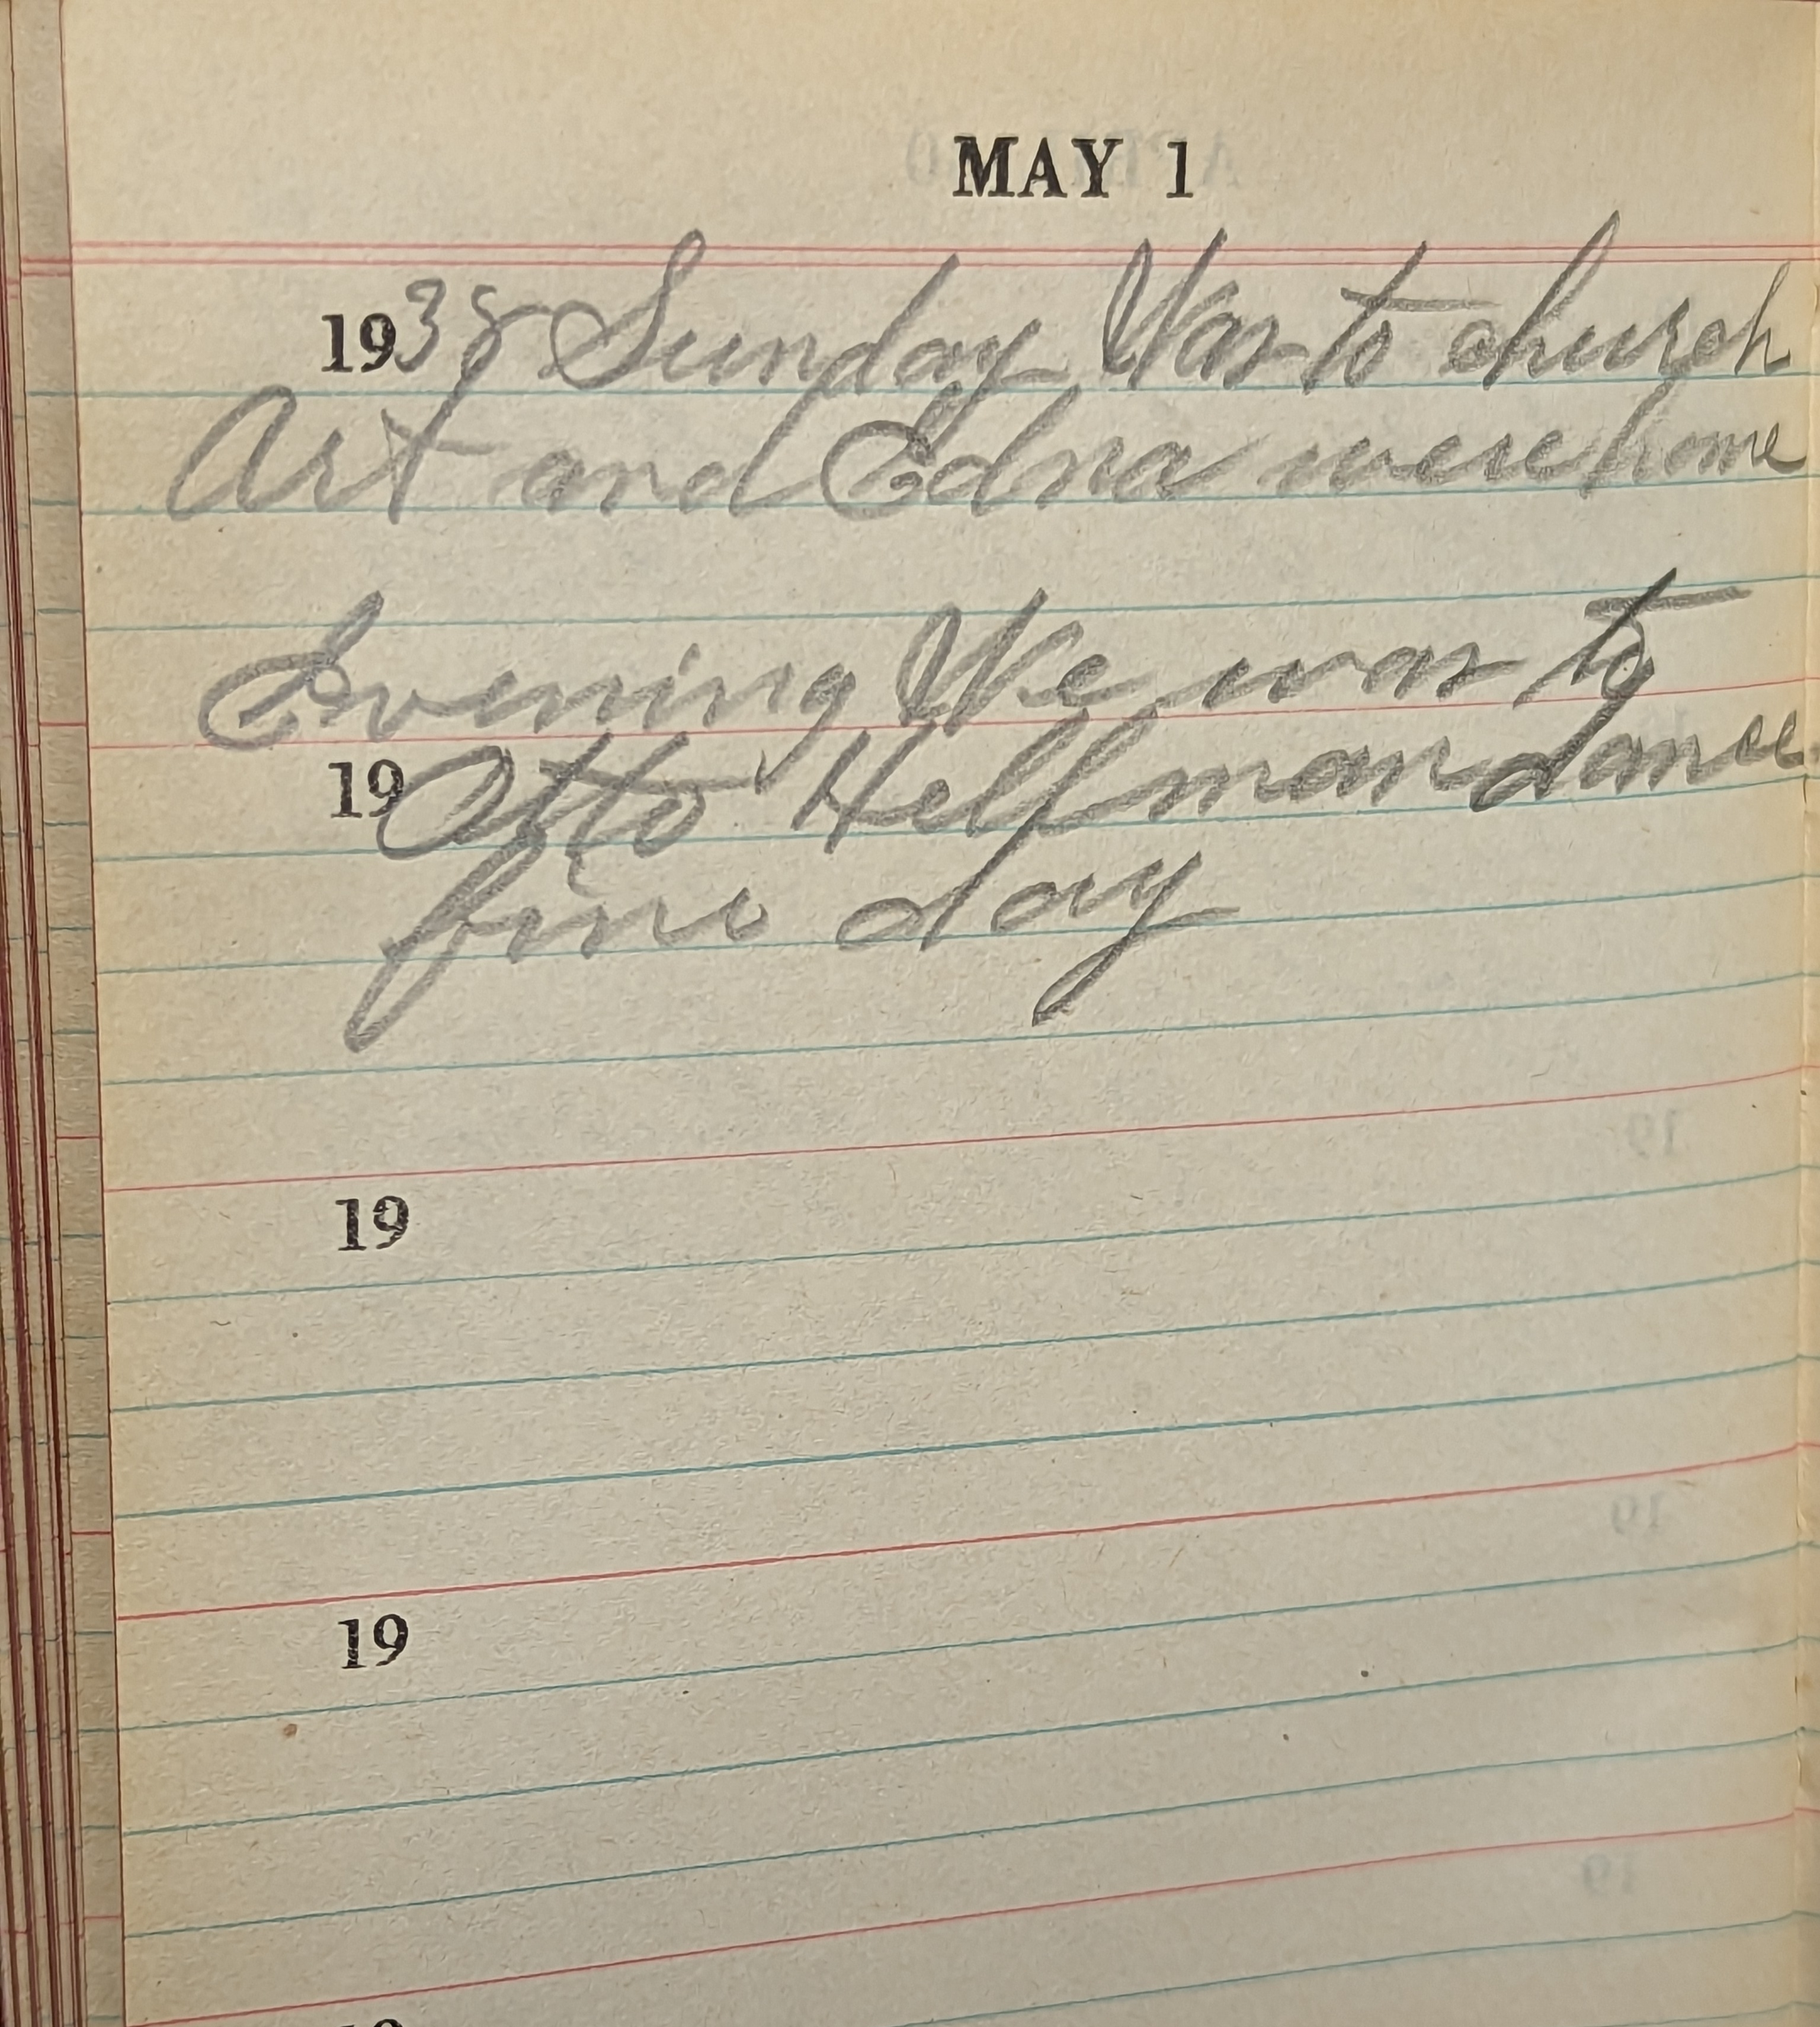 MAY 1
1938 Sunday Was to church
Art and Edna were home
Evening We was to
19 Otto Hellman dance
fine day
19
19